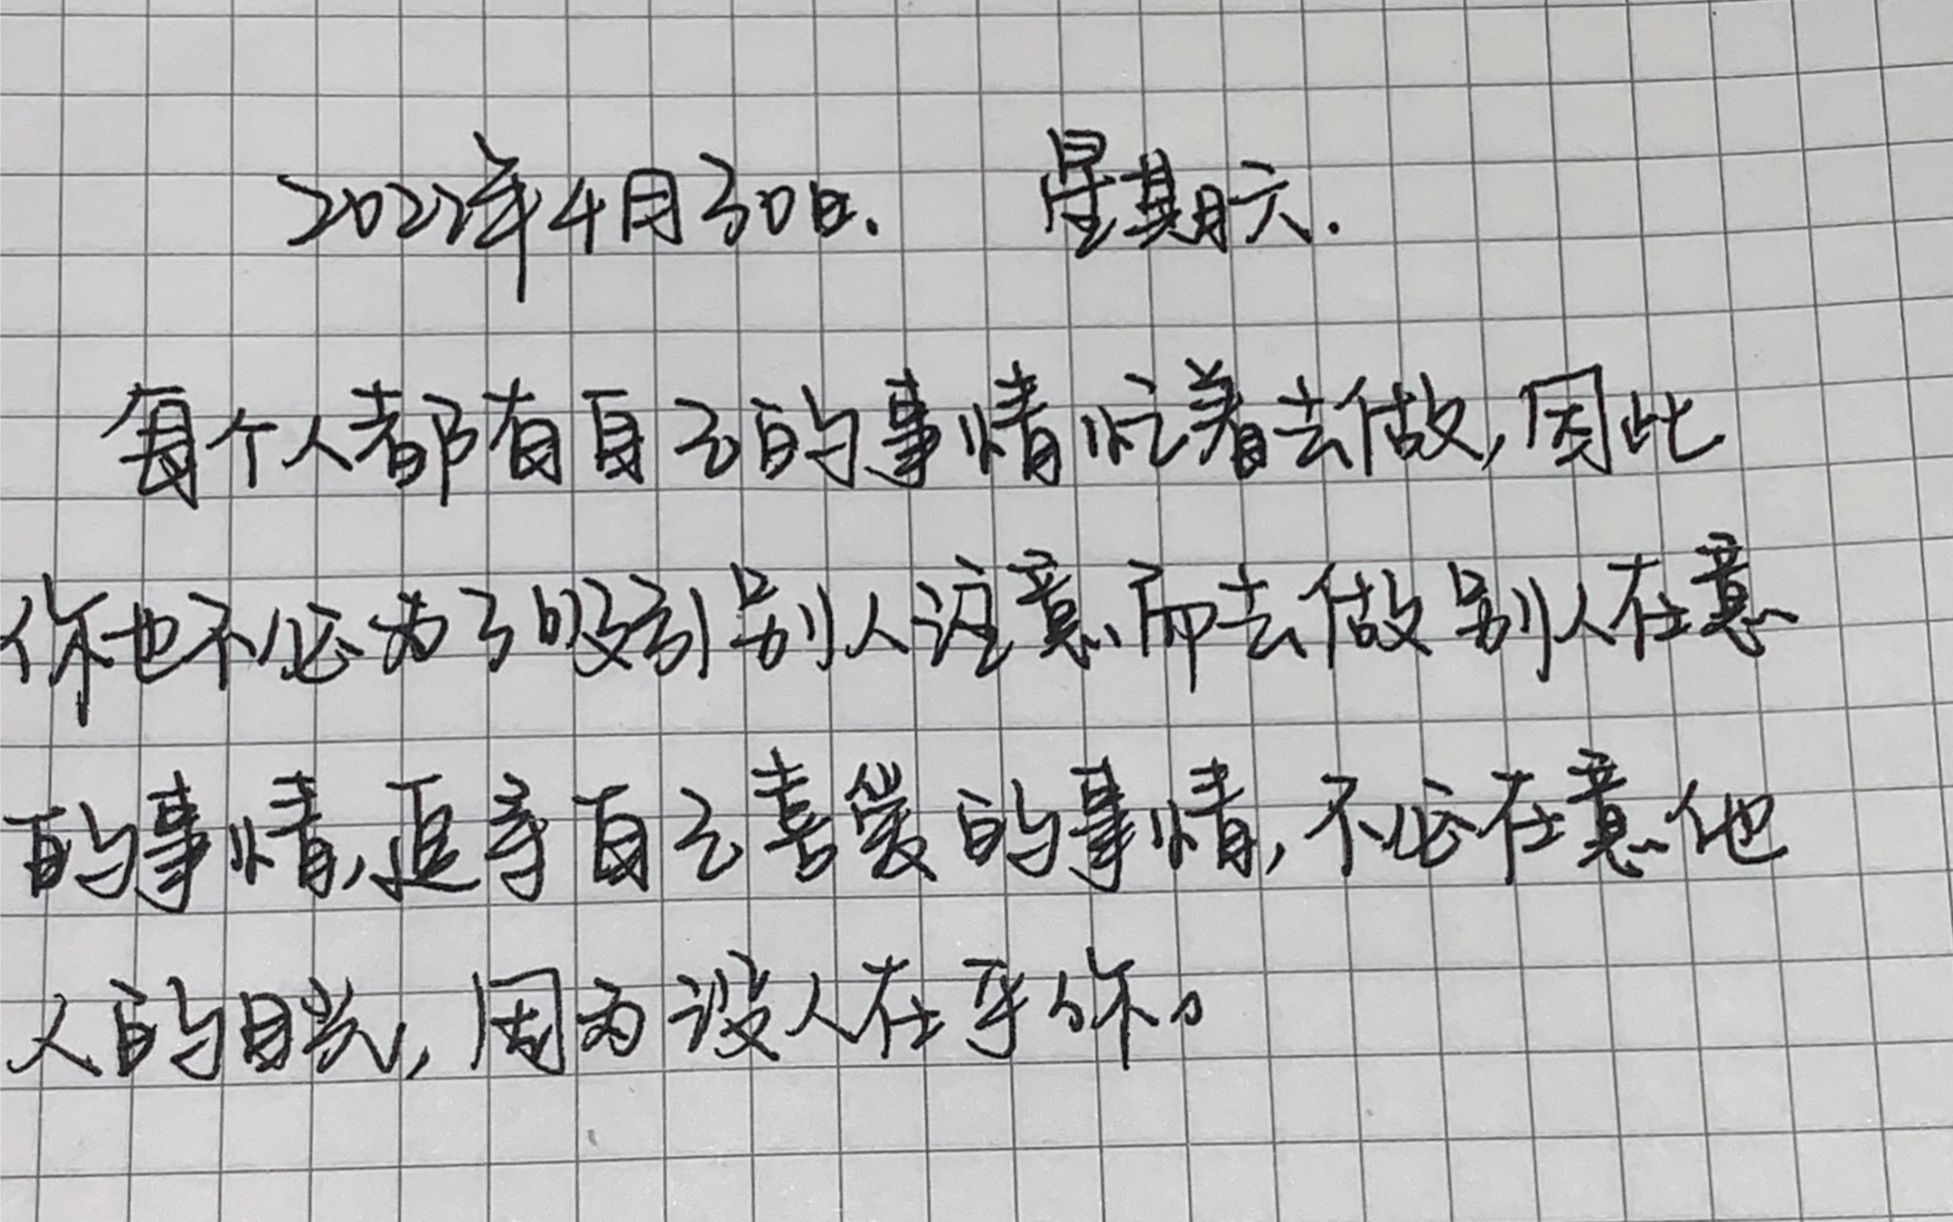 2022年4月30日. 星期六.
每个人都有自己的事情忙着去做,因此
你也不必为了吸引别人注意、而去做别人在意
的事情,追寻自己喜爱的事情,不必在意他
人的目光,因为没人在乎你。